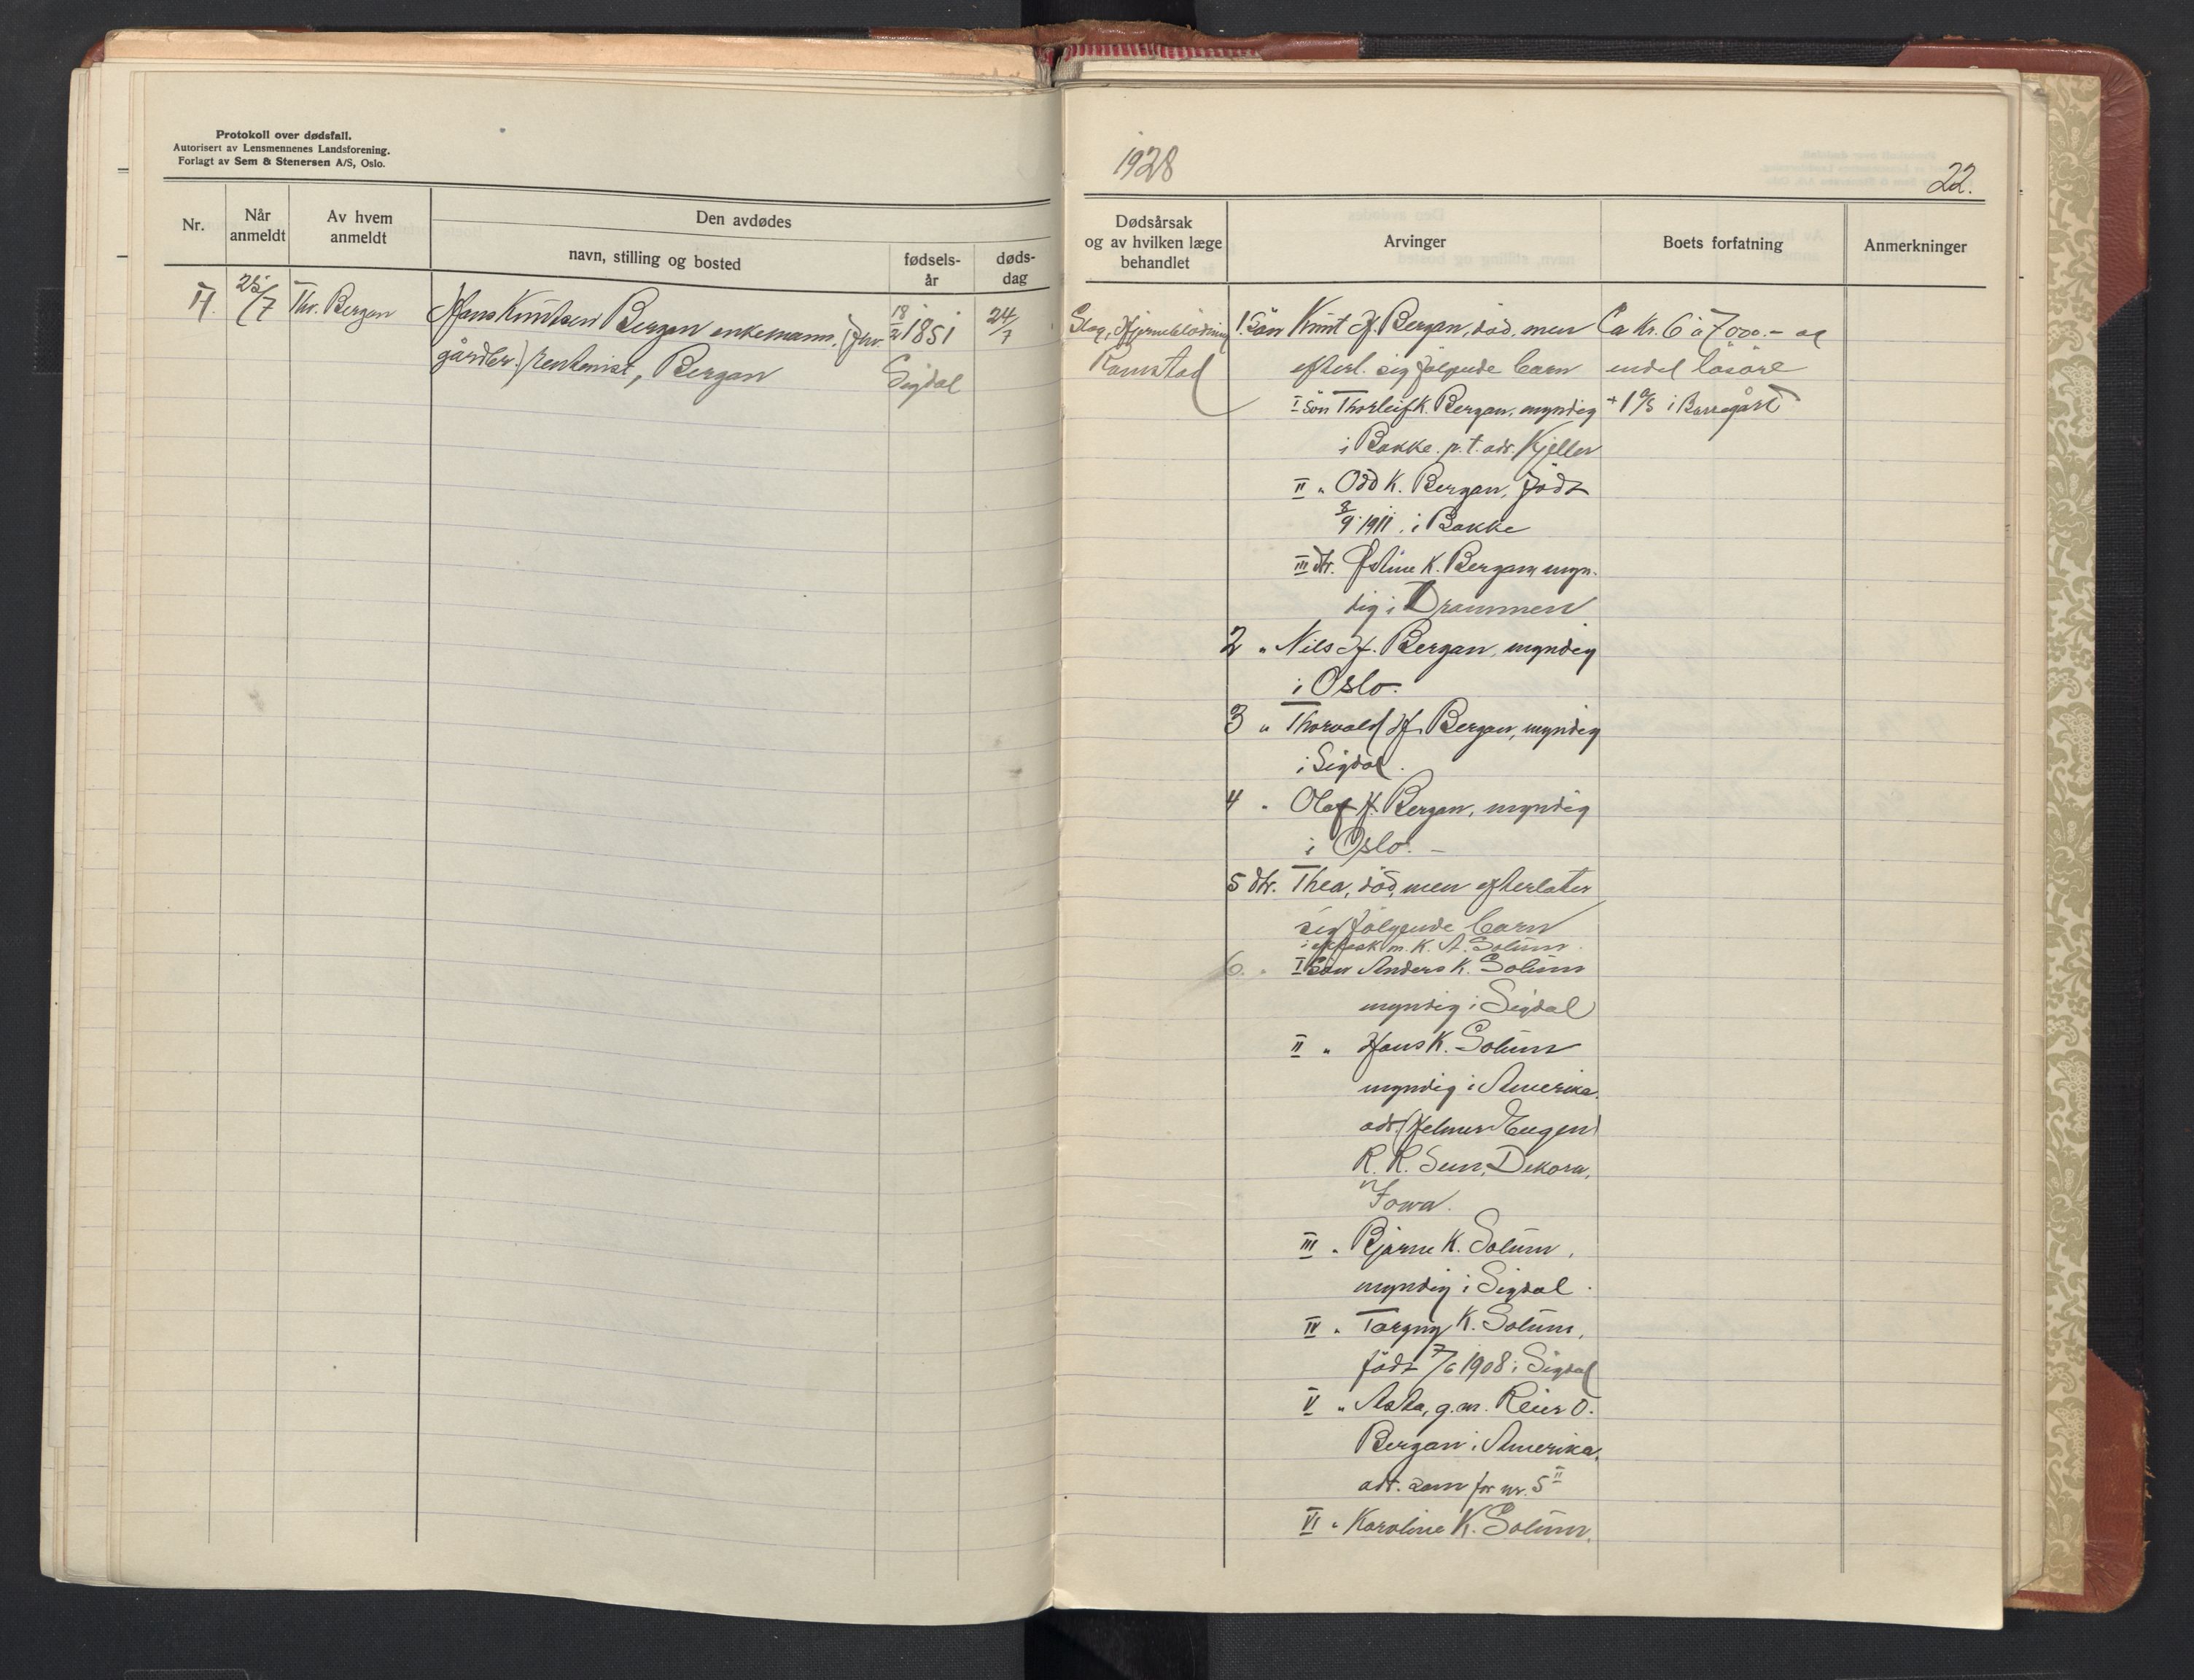 Protokoll over dødsfall.
Autorisert av Lensmennenes Landsforening.
Forlagt av Sem & Stenersen A/S, Oslo.
Nr.
Når anmeldt
Av hvem anmeldt
Den avdødes
navn, stilling og bosted
fødsels-år
døds-dag
25/7 Thv. Bergan
Hans Knutsen Bergan enkemann. (fhv.
gårdbr.) rentenist, Bergan
18/2 1851
Sigdal
24/7
1928
22.
Dødsårsak og av hvilken læge behandlet
Arvinger
Boets forfatning
Anmerkninger
Slag, Hjerneblödning
Ramstad
1. Sön Knut H. Bergan, död, men
efterl. sig fölgende barn
I Sön Thorleif K. Bergan, myndig
i Bakke. p.t. adr. Kjeller
II " Odd K. Bergan, född
8/9 1911. i Bakke
III dtr. K. Bergan, myn-
dig i Drammen
2 " Nils H. Bergan, myndig
i Oslo.
3 " Thorvald H. Bergan, myndig
i Sigdal.
4 " Olaf H. Bergan, myndig
i Oslo. -
5 dtr. Thea, död, men efterlater
sig fölgende barn
i ektesk m. K. A. Solum.
6. " I Sön Anders K. Solum
myndig i Sigdal
II " Hans K. Solum
myndig i Amerika.
adr. Helmer Eugen
R. R. Dekora,
Iowa.
III " Bjarne K. Solum,
myndig i Sigdal.
IV " Torgny K. Solum,
född 7/6 1908 i Sigdal
V " Asta, g.m. Reier O.
Bergan i Amerika.
adr. som for nr. 5 II
VI " Karoline K. Solum.
Ca kr. 6 à 7000.- og
endel lösöre
+ 1 i Borregård